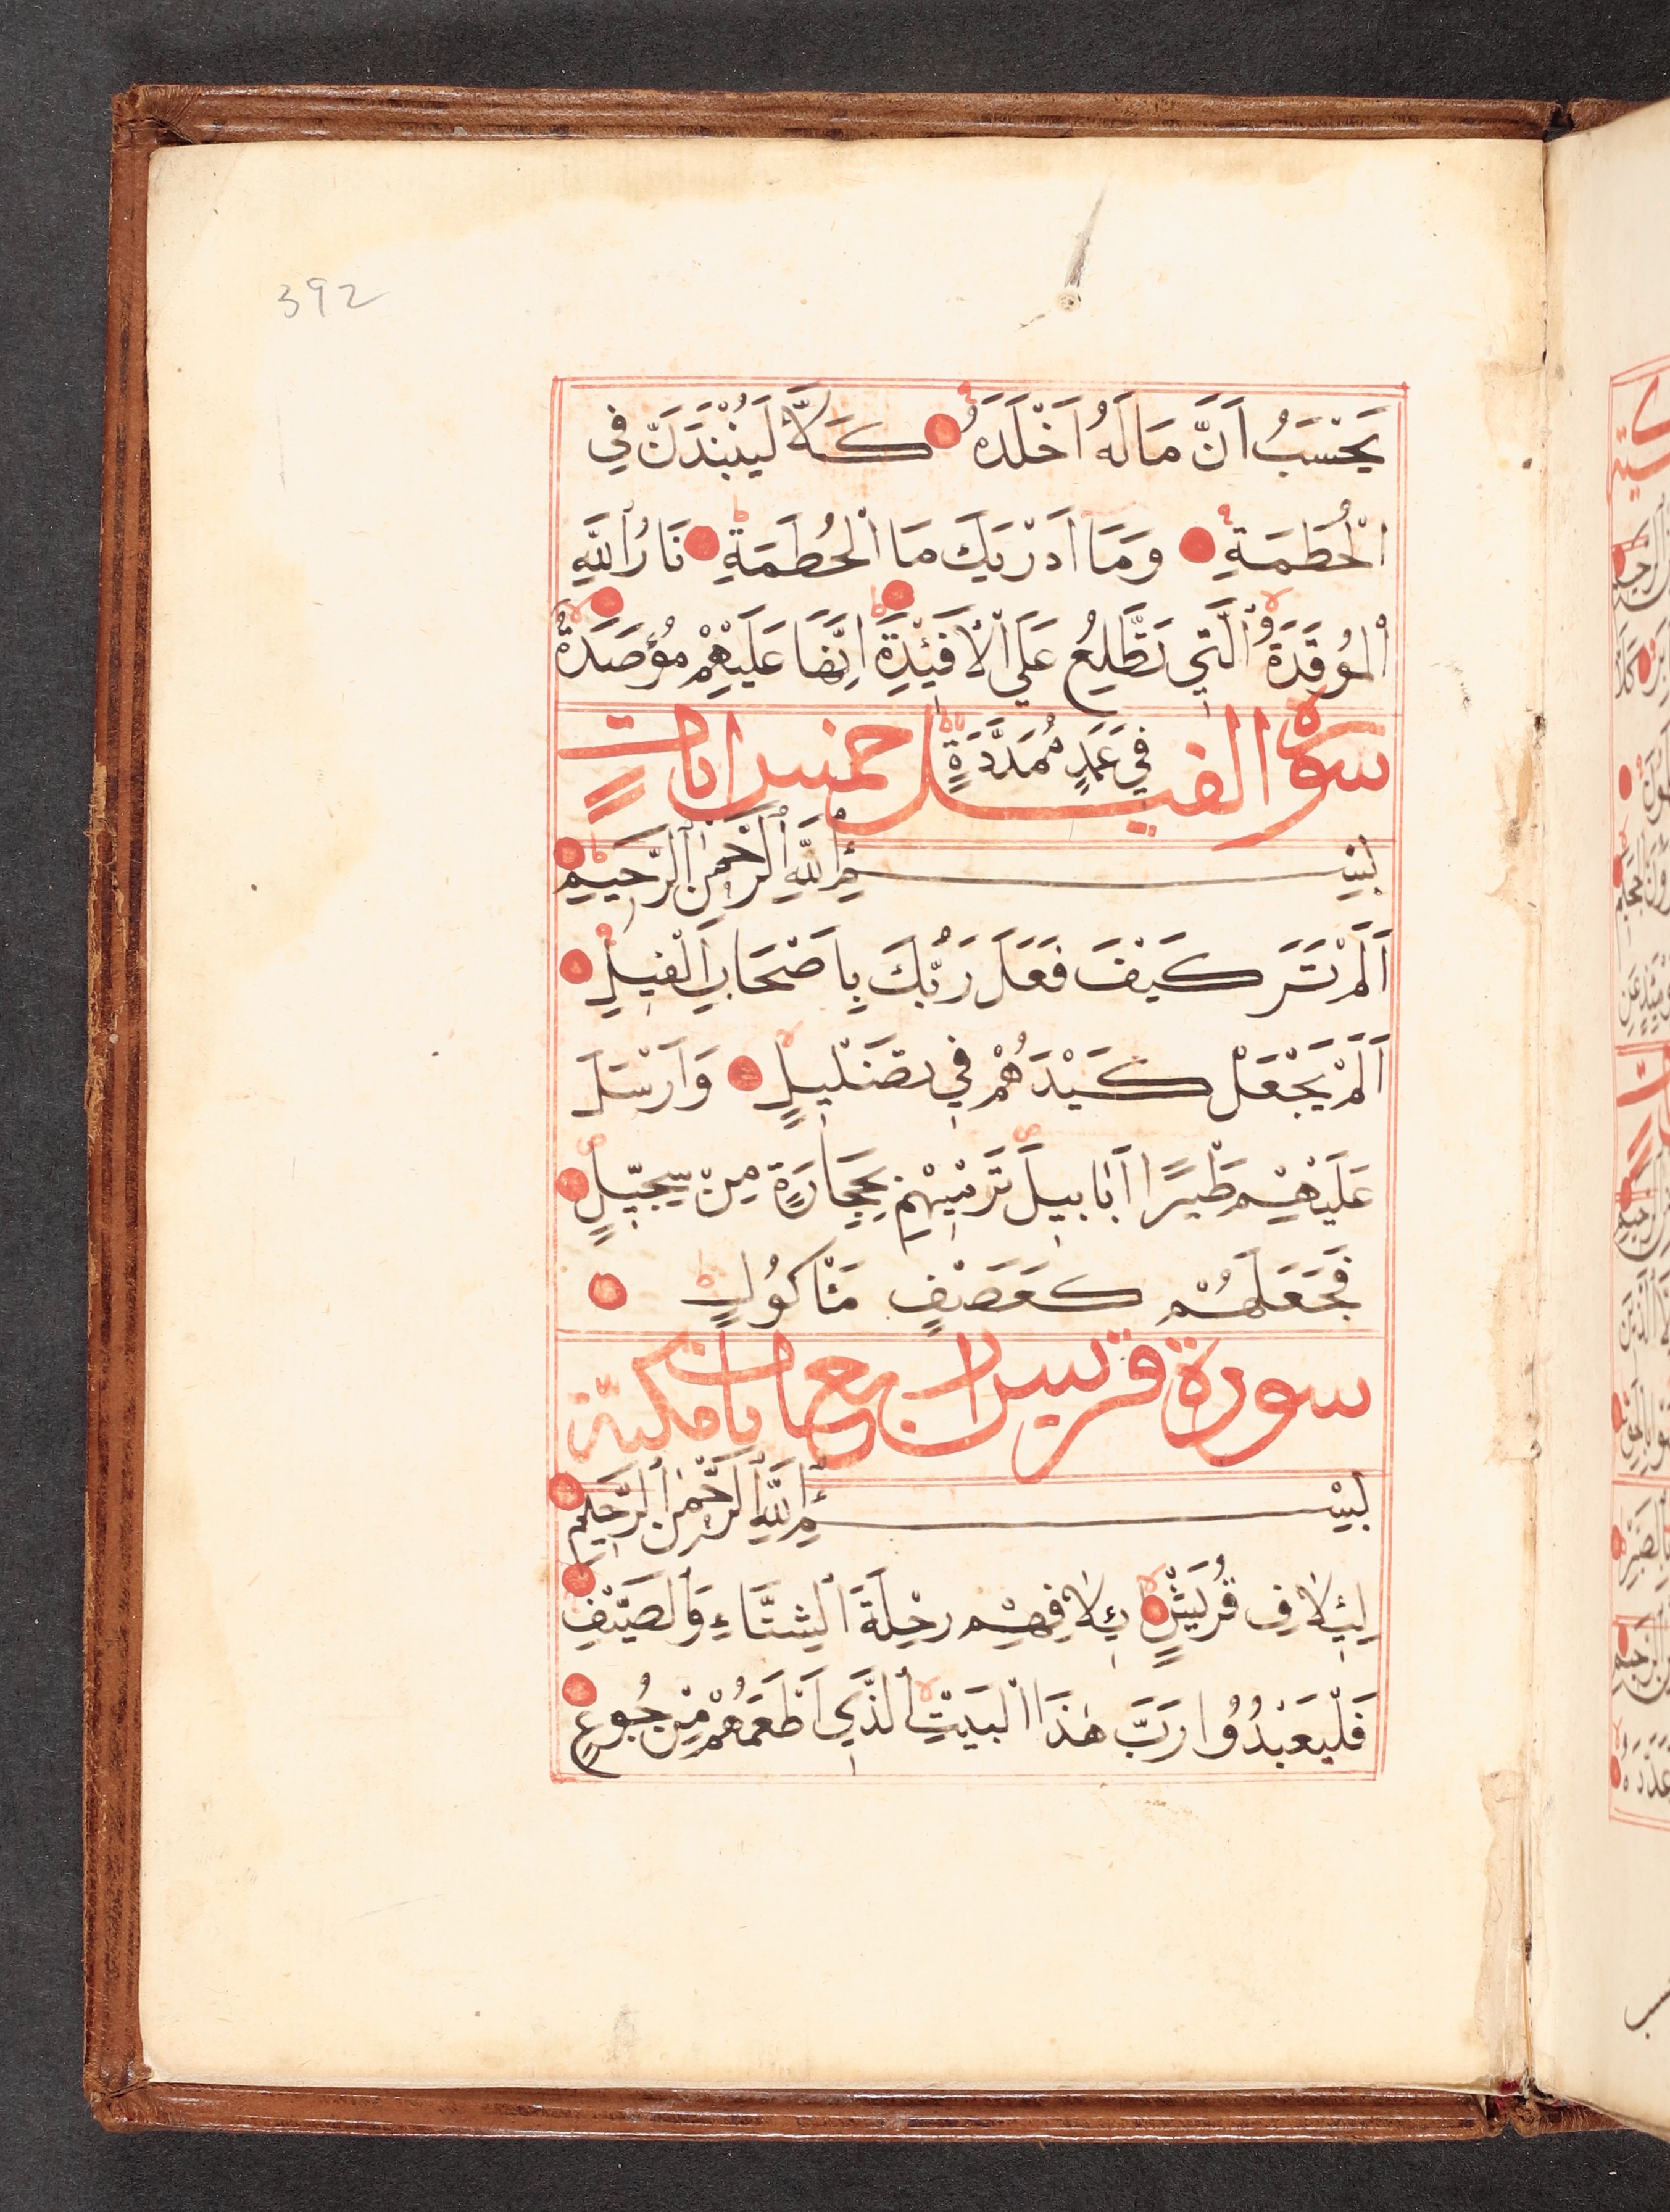 392
يَحْسَبُ اَنَّ مَالَهُ اَخْلَدَهُ كَلَّا لَيُنْبَذَنَّ فِي
الْحُطَمَةِ وَمَا اَدْرٰيكَ مَا الْحُطَمَةِ نَارُ اللّٰهِ
الْمُوقَدَةُ الَّتِي تَطَّلِعُ عَلَي الْاَفْئِدَةِ اِنَّهَا عَلَيْهِمْ مُؤْصَدَةٌ
فِي عَمَدٍ مُمَدَّدَةٍ
سورة الفيل خمس ايات
بِسْــــمِ اللّٰهِ الرَّحْمٰنِ الرَّحِيمِ
اَلَمْ تَرَ كَيْفَ فَعَلَ رَبُّكَ بِاَصْحَابِ الْفِيلِ
اَلَمْ يَجْعَلْ كَيْدَهُمْ فِي تَضْلِيلٍ وَاَرْسَلَ
عَلَيْهِمْ طَيْرًا اَبَابِيلَ تَرْمِيْهِمْ بِحِجَارَةٍ مِنْ سِجِّيلٍ
فَجَعَلَهُمْ كَعَصْفٍ مَاْكُولٍ
سورة قريش اربع ايات مكية
بِسْــــمِ اللّٰهِ الرَّحْمٰنِ الرَّحِيمِ
لِئِيلَافِ قُرَيْشٍ اِيلَافِهِمْ رِحْلَةَ الشِّتَّاءِ وَالصَّيْفِ
فَلْيَعْبُدُوا رَبَّ هٰذَا الْبَيْتِ الَّذِي اَطْعَمَهُمْ مِنْ جُوعٍ